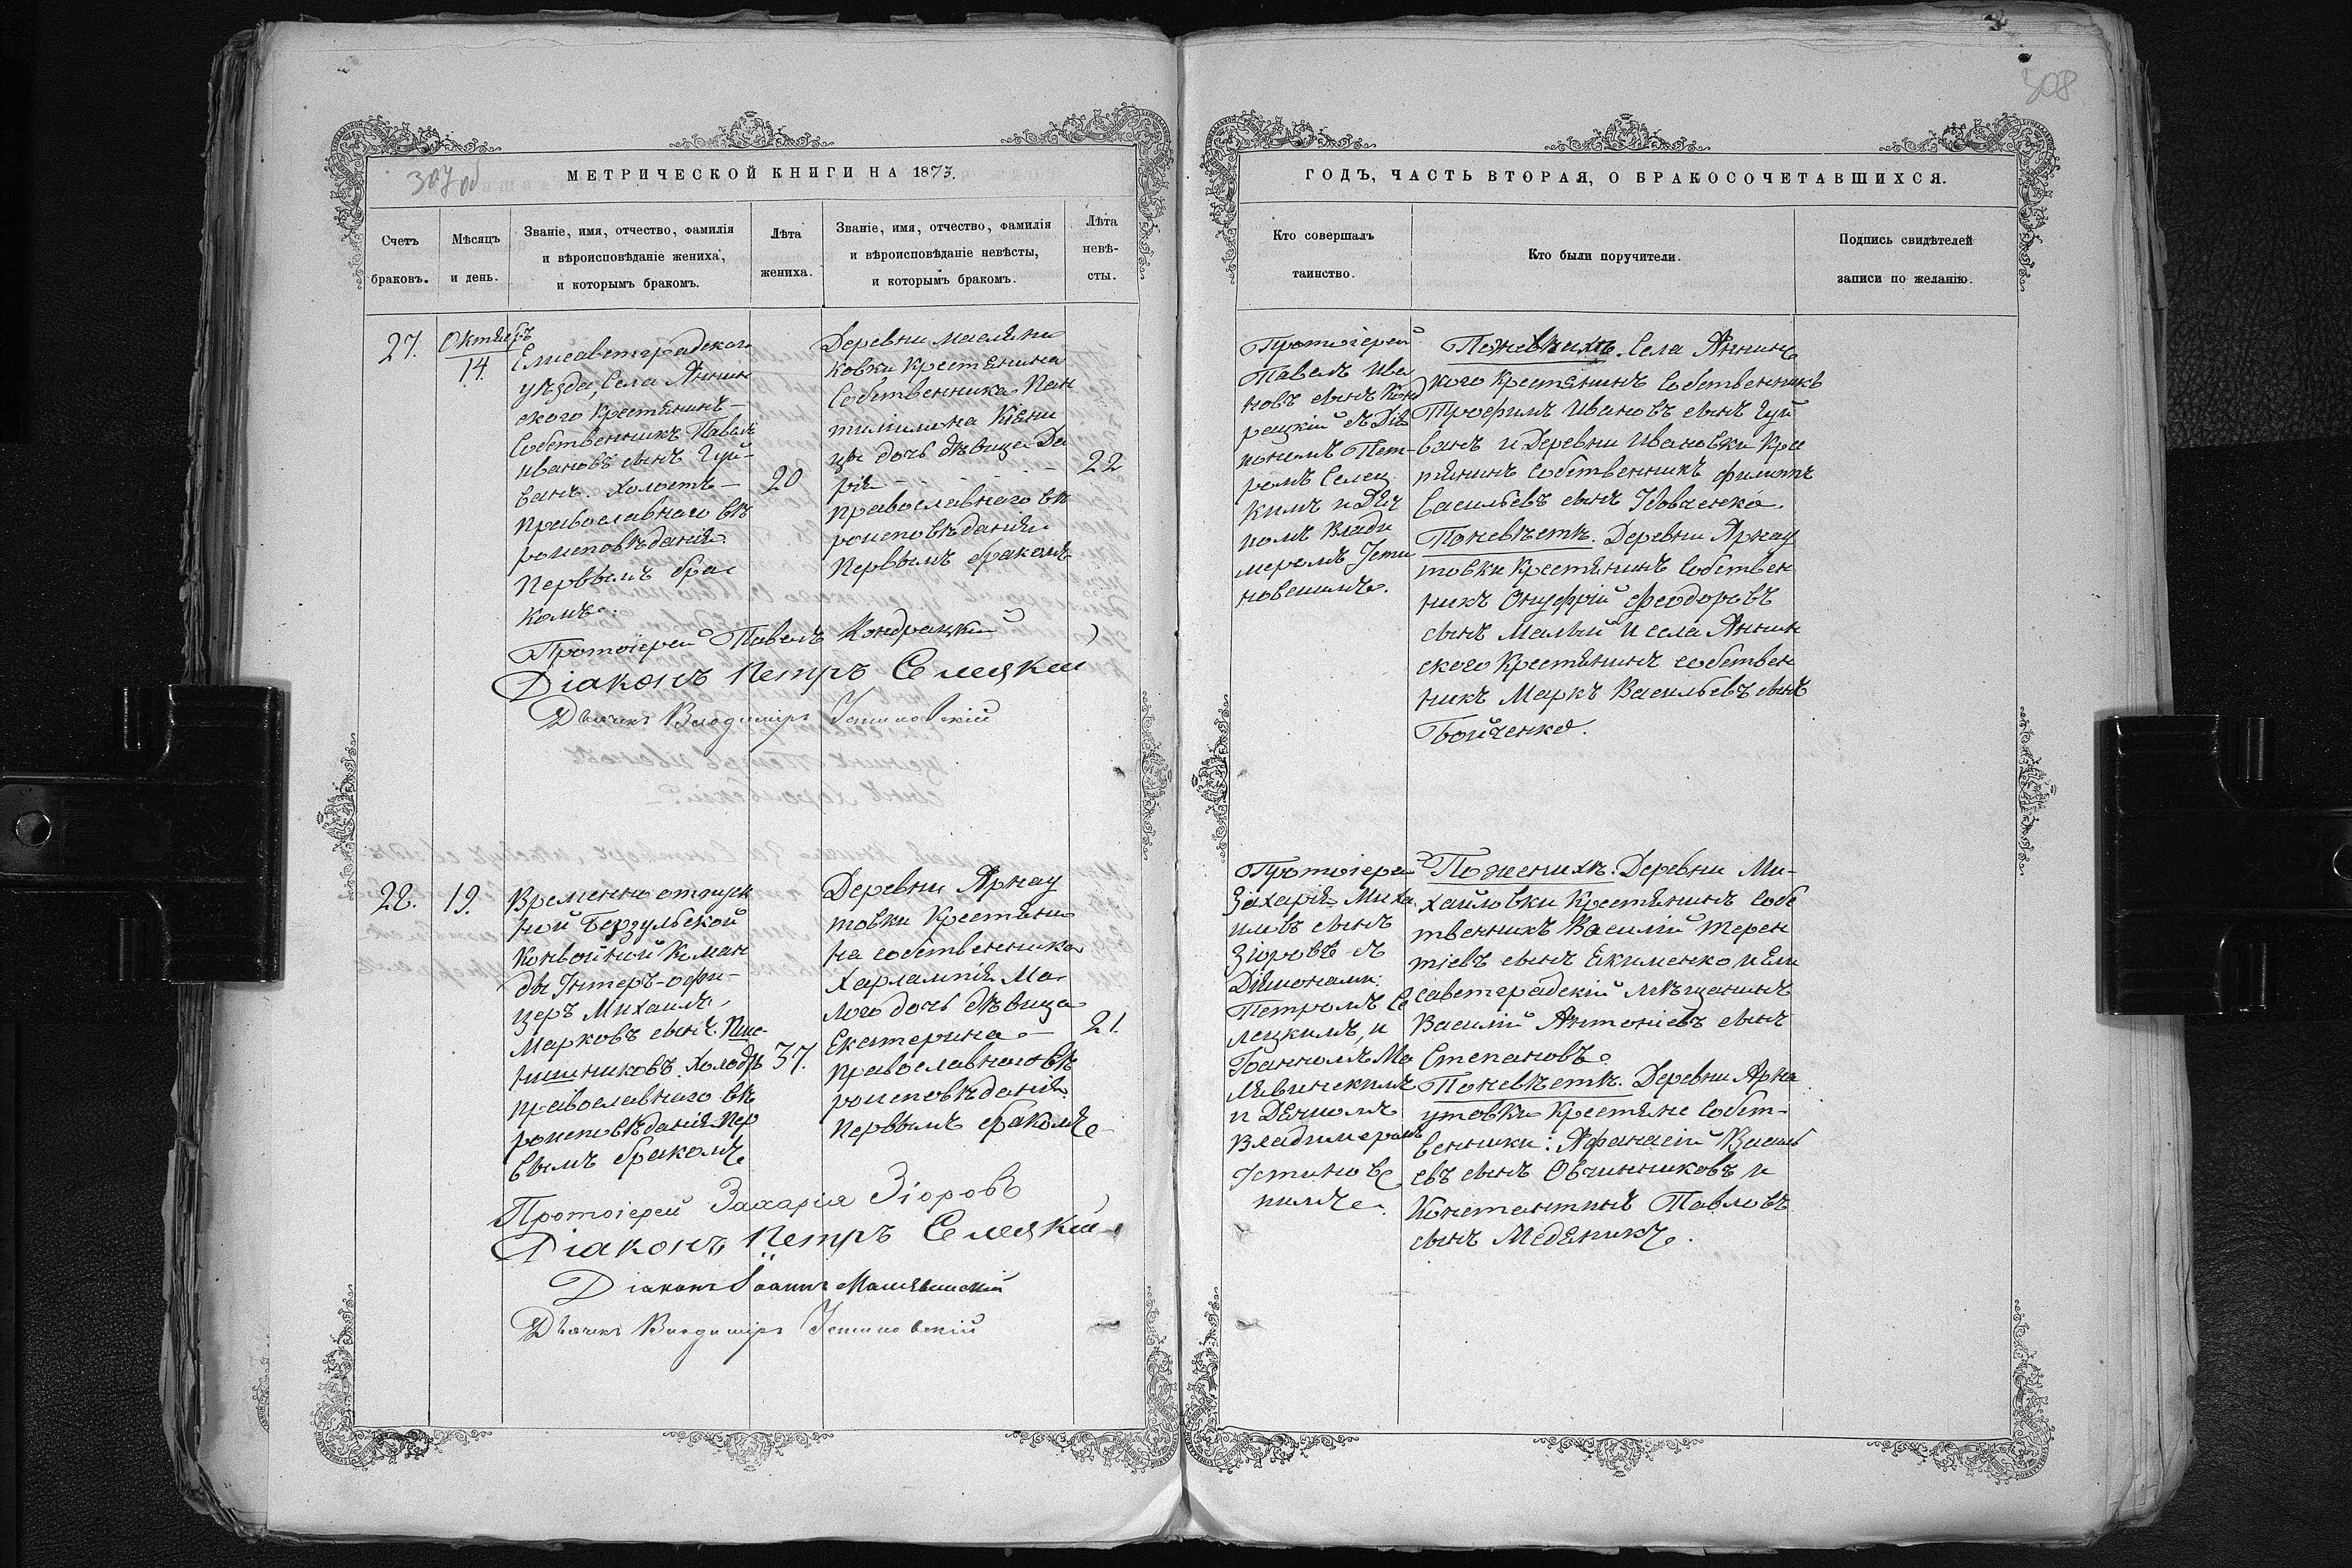 307 об
МЕТРИЧЕСКОЙ КНИГИ НА 1873.
Счетъ
браковъ.
Мѣсяцъ
и день.
Званіе, имя, отчество, фамилія
и вѣроисповѣданіе жениха,
и которымъ бракомъ.
Лѣта
жениха.
Званіе, имя, отчество, фамилія
и вѣроисповѣданіе невѣсты,
и которымъ бракомъ.
Лѣта
невѣ-
сты.
27.
Октябрь
14.
Елисаветградскаго
уѣзда, Села Аннин
скаго Крестьянинъ
Собственникъ Павелъ
Ивановъ сынъ Чуй-
ванъ. Холостъ —
православнаго вѣ
роисповѣданія.
Первымъ бра
комъ.
20
Деревни Масляни
ковки Крестьянина
Собственника Пан
тилимона
дочь дѣвица Да
рія —
православнаго вѣ
роисповѣданія
Первымъ бракомъ
22
Протоіерей Павелъ Кондрацкій
Діаконъ Петръ Селецкій
Дьячекъ Владиміръ Устиновскій
28.
19.
Временно отпуск
ной Берзульской
Конвойной Коман
ды Унтеръ-офи-
церъ Михаилъ
Марковъ сынъ Пше-
нишниковъ. Холостъ
православнаго вѣ
роисповѣданія Пер
вымъ бракомъ
37.
Деревни Арнау
товки Крестьяни
на собственника
Харлампія Ма-
лого дочь дѣвица
Екатерина —
православнаго вѣ
роисповѣданія
первымъ бракомъ
21.
Протоіерей Захарія Зіоровъ
Діаконъ Петръ Селецкій
Діаконъ Іоаннъ Малявинскій
Дьячекъ Владиміръ Устиновскій
308
ГОДЪ, ЧАСТЬ ВТОРАЯ, О БРАКОСОЧЕТАВШИХСЯ.
Кто совершалъ
таинство.
Кто были поручители.
Подпись свидѣтелей
записи по желанію.
Протоіерей
Павелъ Ива
новъ сынъ Конд
рацкій съ Діа
кономъ Пет-
ромъ Селец
кимъ и Дьяч
комъ Влади
меромъ Усти
новскимъ.
По женихѣ. Села Аннинс
кого Крестьянинъ Собственникъ
Трофимъ Ивановъ сынъ Чуй
ванъ и Деревни Ивановки Крес
тьянинъ Собственникъ Филиппъ
Васильевъ сынъ
По невѣстѣ. Деревни Арнау
товки Крестьянинъ Собствен
никъ Онуфрій Феодоровъ
сынъ Малый и села Аннин
ского Крестьянинъ собствен
никъ Маркъ Васильевъ сынъ
Бойченко.
Протоіерей
Захарія Миха
иловъ сынъ
Зіоровъ съ
Діяконами:
Петромъ Се
лецкимъ, и
Іоанномъ Ма
лявинскимъ
и Дьячкомъ
Владимеромъ
Устиновс
кимъ.
По женихѣ. Деревни Ми-
хайловки Крестьянинъ Собс
твенникъ Василій Терен
тіевъ сынъ Екименко и Ели
саветградскій мѣщанинъ
Василій Антоніевъ сынъ
Степановъ.
По невѣстѣ. Деревни Арна
утовки Крестьяне Собст-
венники: Афанасій Василь
евъ сынъ Овчинниковъ и
Константинъ Павловъ
сынъ Меденикъ.